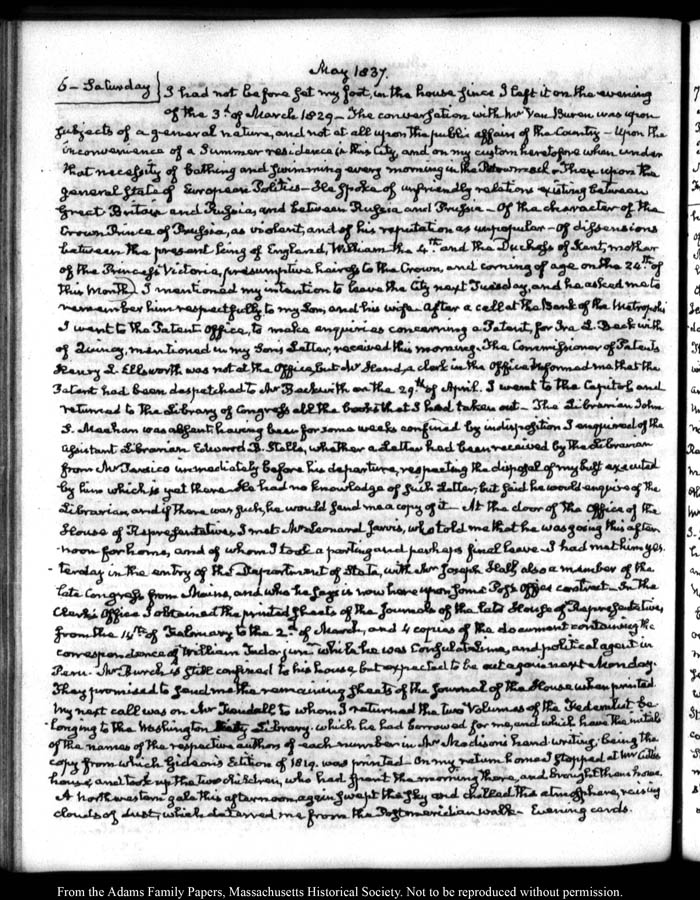 May 1837.
6 – Saturday} I had not before set my foot, in the house since I left it on the evening
of the 3d of March 1829 – The conversation with Mr Van Buren was upon
subjects of a general nature, and not at all upon the public affairs of the Country – Upon the
inconvenience of a Summer residence in this City, and on my custom heretofore when under
that necessity of bathing and swimming every morning in the Potowmack – Then upon the
general state of European Politics – He spoke of unfriendly relations existing between
Great Britain and Russia, and between Russia and Prussia – Of the character of the
Crown Prince of Prussia, as violent, and of his reputation as unpopular – Of dissensions
between the present King of England, William the 4th and the Duchess of Kent, mother
of the Princess Victoria, presumptive heiress to the Crown, and coming of age on the 24th of
this Month. I mentioned my intention to leave the City next Tuesday, and he asked me to
remember him respectfully to my Son, and his wife – After a call at the Bank of the Metropolis
I went to the Patent Office, to make enquiries concerning a Patent, for Ira L. Beckwith
of Quincy, mentioned in my Son's Letter, received this morning. The Commissioner of Patents
Henry L. Ellsworth was not at the Office, but Mr Hand, a clerk in the Office informed me that the
Patent had been despatched to Mr Beckwith on the 29th of April. I went to the Capitol and
returned to the Library of Congress all the books that I had taken out – The Librarian John
S. Meehan was absent, having been for some weeks confined by indisposition I enquired of the
Assistant Librarian Edward B. Stelle, whether a Letter had been received by the Librarian
from Mr Persico immediately before his departure, respecting the disposal of my bust executed
by him which is yet there – He had no knowledge of such Letter, but said he would enquire of the
Librarian, and if there was such, he would send me a copy of it – At the door of the Office of the
House of Representatives I met Mr Leonard Jarvis, who told me that he was going this after-
noon for home, and of whom I took a parting and perhaps final leave – I had met him yes-
terday in the entry of the Department of State, with Mr Joseph Hall, also a member of the
late Congress from Maine, and who he says is now here upon some Post Office contract – In the
Clerk's Office I obtained the printed sheets of the Journals of the late House of Representatives,
from the 14th of February to the 2d of March, and 4 copies of the document containing the
correspondence of William Tudor junr while he was Consul at Lima, and political agent in
Peru. Mr Burch is still confined to his house, but expected to be out again next Monday.
They promised to send me the remaining sheets of the Journal of the House when printed
My next call was on Mr Kendall to whom I returned the two Volumes of the Federalist be-
longing to the Washington City Library. which he had borrowed for me, and which have the initials
of the names of the respective authors of each number in Mr Madison's hand writing; being the
copy from which Gideon's Edition of 1819. was printed – On my return home I stopped at Mr
house, and took up the two children, who had spent the morning there, and brought them home.
A Northwestern gale this afternoon, again swept the sky and chilled the atmosphere, raising
clouds of dust, which deterred me from the Postmeridian walk – Evening cards.
From the Adams Family Papers, Massachusetts Historical Society. Not to be reproduced without permission.